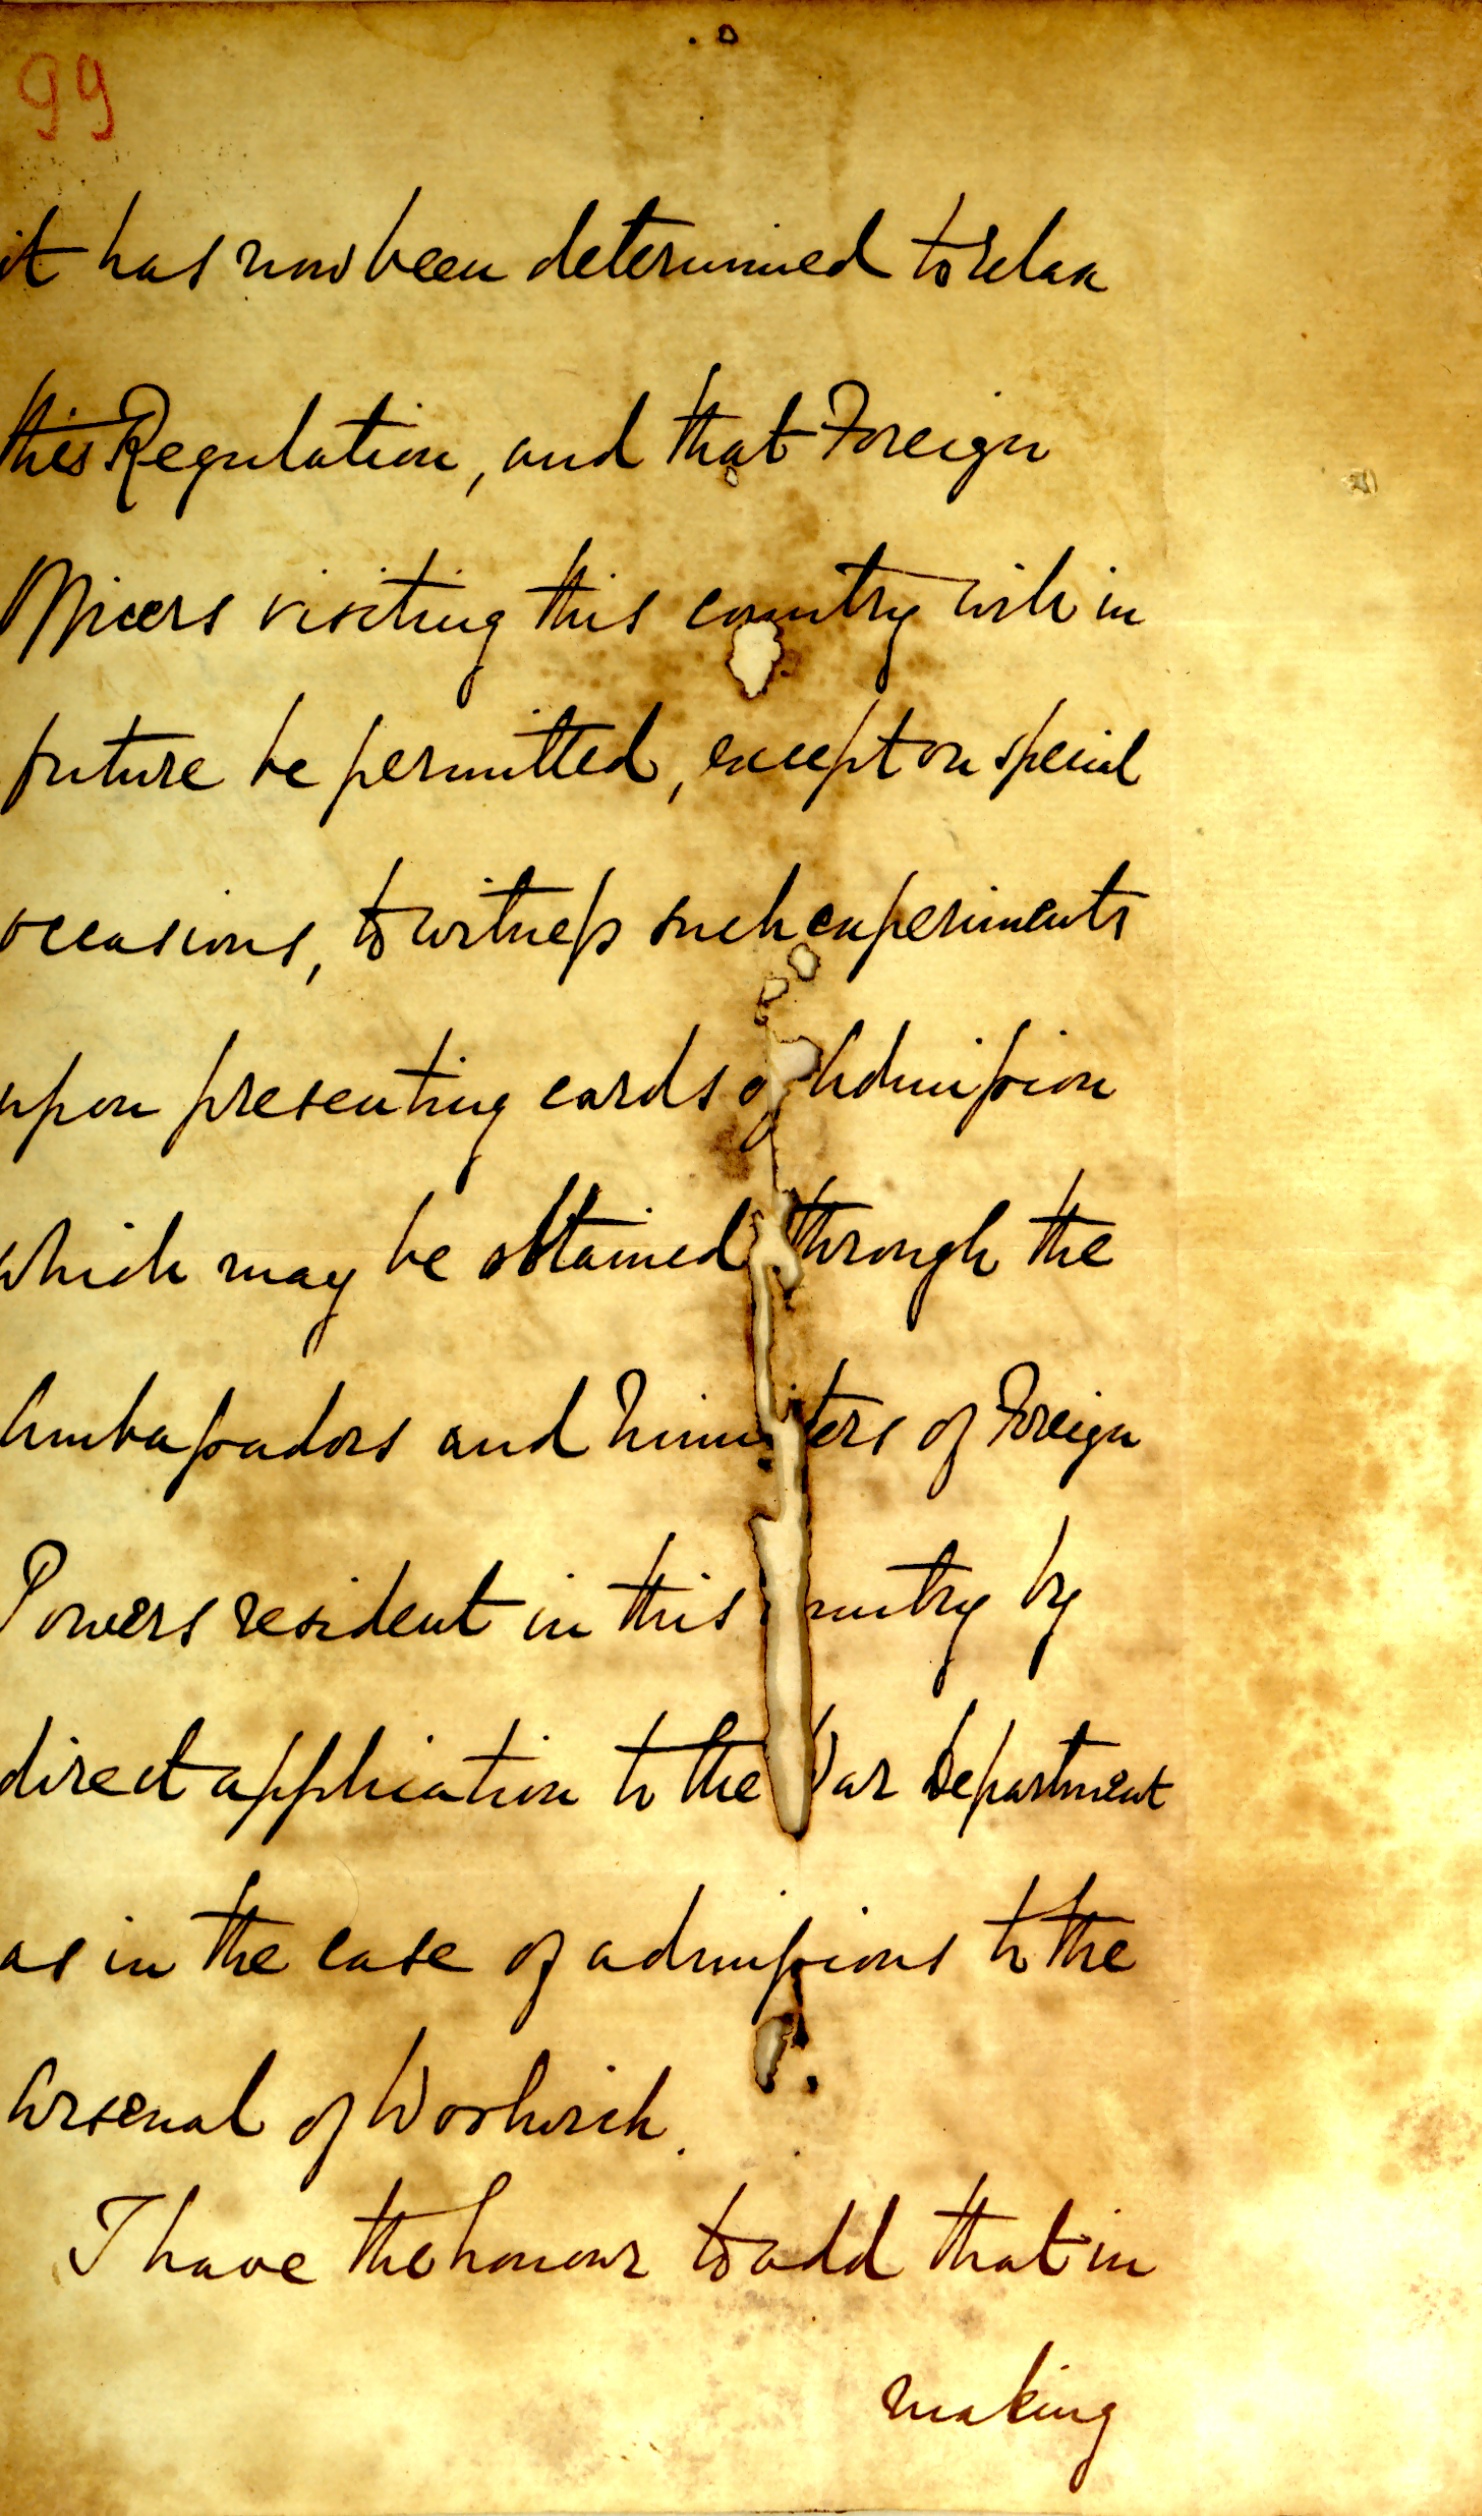 99
it has now been determined to relax
this Regulation, and that Foreign
Officers visiting this country will in
future be permitted, except on special
occasions, to witness such experiments
upon presenting cards of Admission
which may be obtained through the
Ambassadors and Ministers of Foreign
Powers resident in this country by
direct application to the War Department
as in the case of admissions to the
Arsenal of Woolwich.
I have the honour to add that in
making